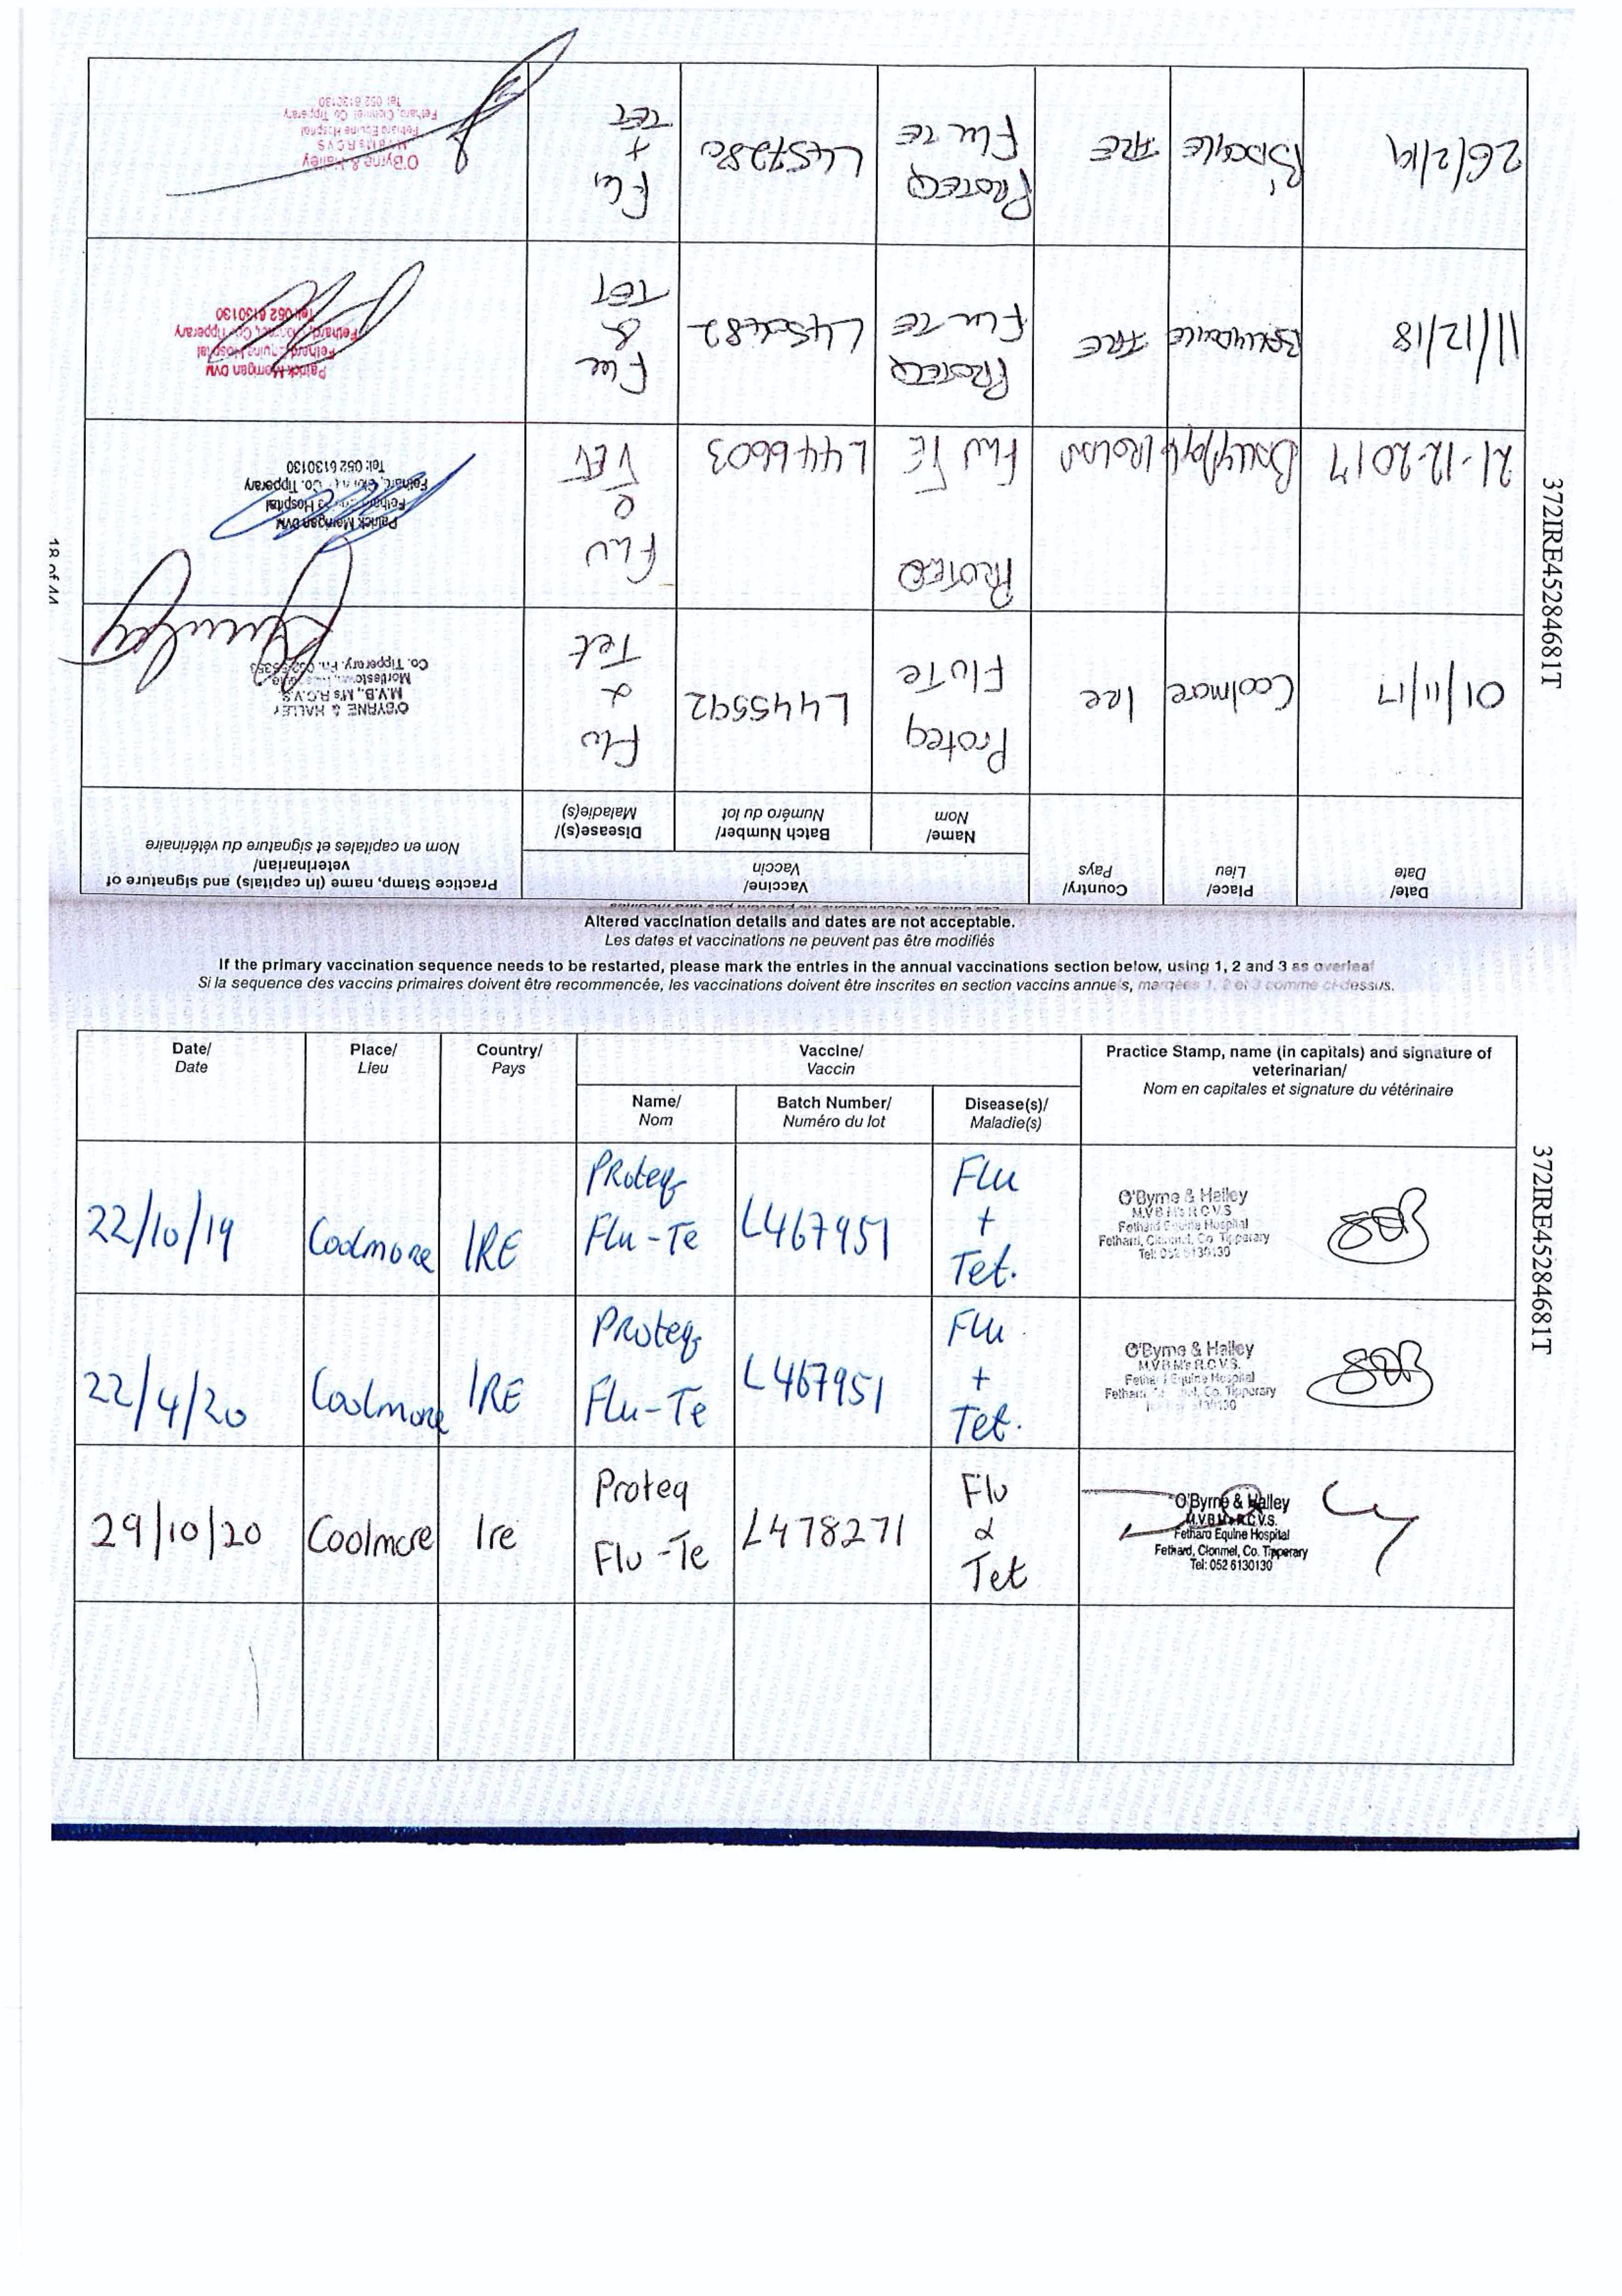 Date/
Date
Place/
Lieu
Country/
Pays
Vaccine/
Vaccin
Name/
Nom
Batch Number/
Numéro du lot
Disease(s)/
Maladie(s)
Practice Stamp, name (in capitals) and signature of
veterinarian/
Nom en capitales et signature du vétérinaire
01/11/17
Coolmore
Ire
Proteq
FluTe
L445592
Flu
&
Tet
O'BYRNE & HALLEY
M.V.B., Ms R.C.V.S.
Co. Tipperary.
21-12-2017
PROTEQ
FLU TE
L446603
FLU
Patrick Merrigan DVM
Hospital
Co. Tipperary
Tel: 052 6130130
11/12/18
IRE
PROTEQ
FLU TE
Flu
&
TET
Patrick Merrigan DVM
Fethard Equine Hospital
Fethard, Clonmel, Co. Tipperary
Tel: 052 6130130
26/2/19
IRE
PROTEQ
Flu TE
L457280
Flu
+
TET
O'Byrne & Halley
M.V.B Ms R C V S
Fethard Equine Hospital
Fethard, Clonmel, Co. Tipperary
Tel: 052 6130130
372IRE45284681T
18 of 44
Altered vaccination details and dates are not acceptable.
Les dates et vaccinations ne peuvent pas être modifiés
If the primary vaccination sequence needs to be restarted, please mark the entries in the annual vaccinations section below, using 1, 2 and 3 as overleaf
Si la sequence des vaccins primaires doivent être recommencée, les vaccinations doivent être inscrites en section vaccins annuels, marqées 1, 2 et 3 comme ci-dessus.
Date/
Date
Place/
Lieu
Country/
Pays
Vaccine/
Vaccin
Name/
Nom
Batch Number/
Numéro du lot
Disease(s)/
Maladie(s)
Practice Stamp, name (in capitals) and signature of
veterinarian/
Nom en capitales et signature du vétérinaire
22/10/19
Coolmore
IRE
PRoteq
Flu-Te
L467951
Flu
+
Tet.
O'Byrne & Halley
M.V.B Ms R C V S
Fethard Equine Hospital
Fethard, Clonmel, Co. Tipperary
Tel: 052 6130130
22/4/20
Coolmore
IRE
PRoteq
Flu-Te
L467951
Flu
+
Tet.
O'Byrne & Halley
M.V.B Ms R.C.V.S.
Fethard Equine Hospital
Fethard, Clonmel, Co. Tipperary
29/10/20
Coolmore
Ire
Proteq
Flu-Te
L478271
Flu
&
Tet
O'Byrne & Halley
M.V.B Ms R.C.V.S.
Fethard Equine Hospital
Fethard, Clonmel, Co. Tipperary
Tel: 052 6130130
372IRE45284681T